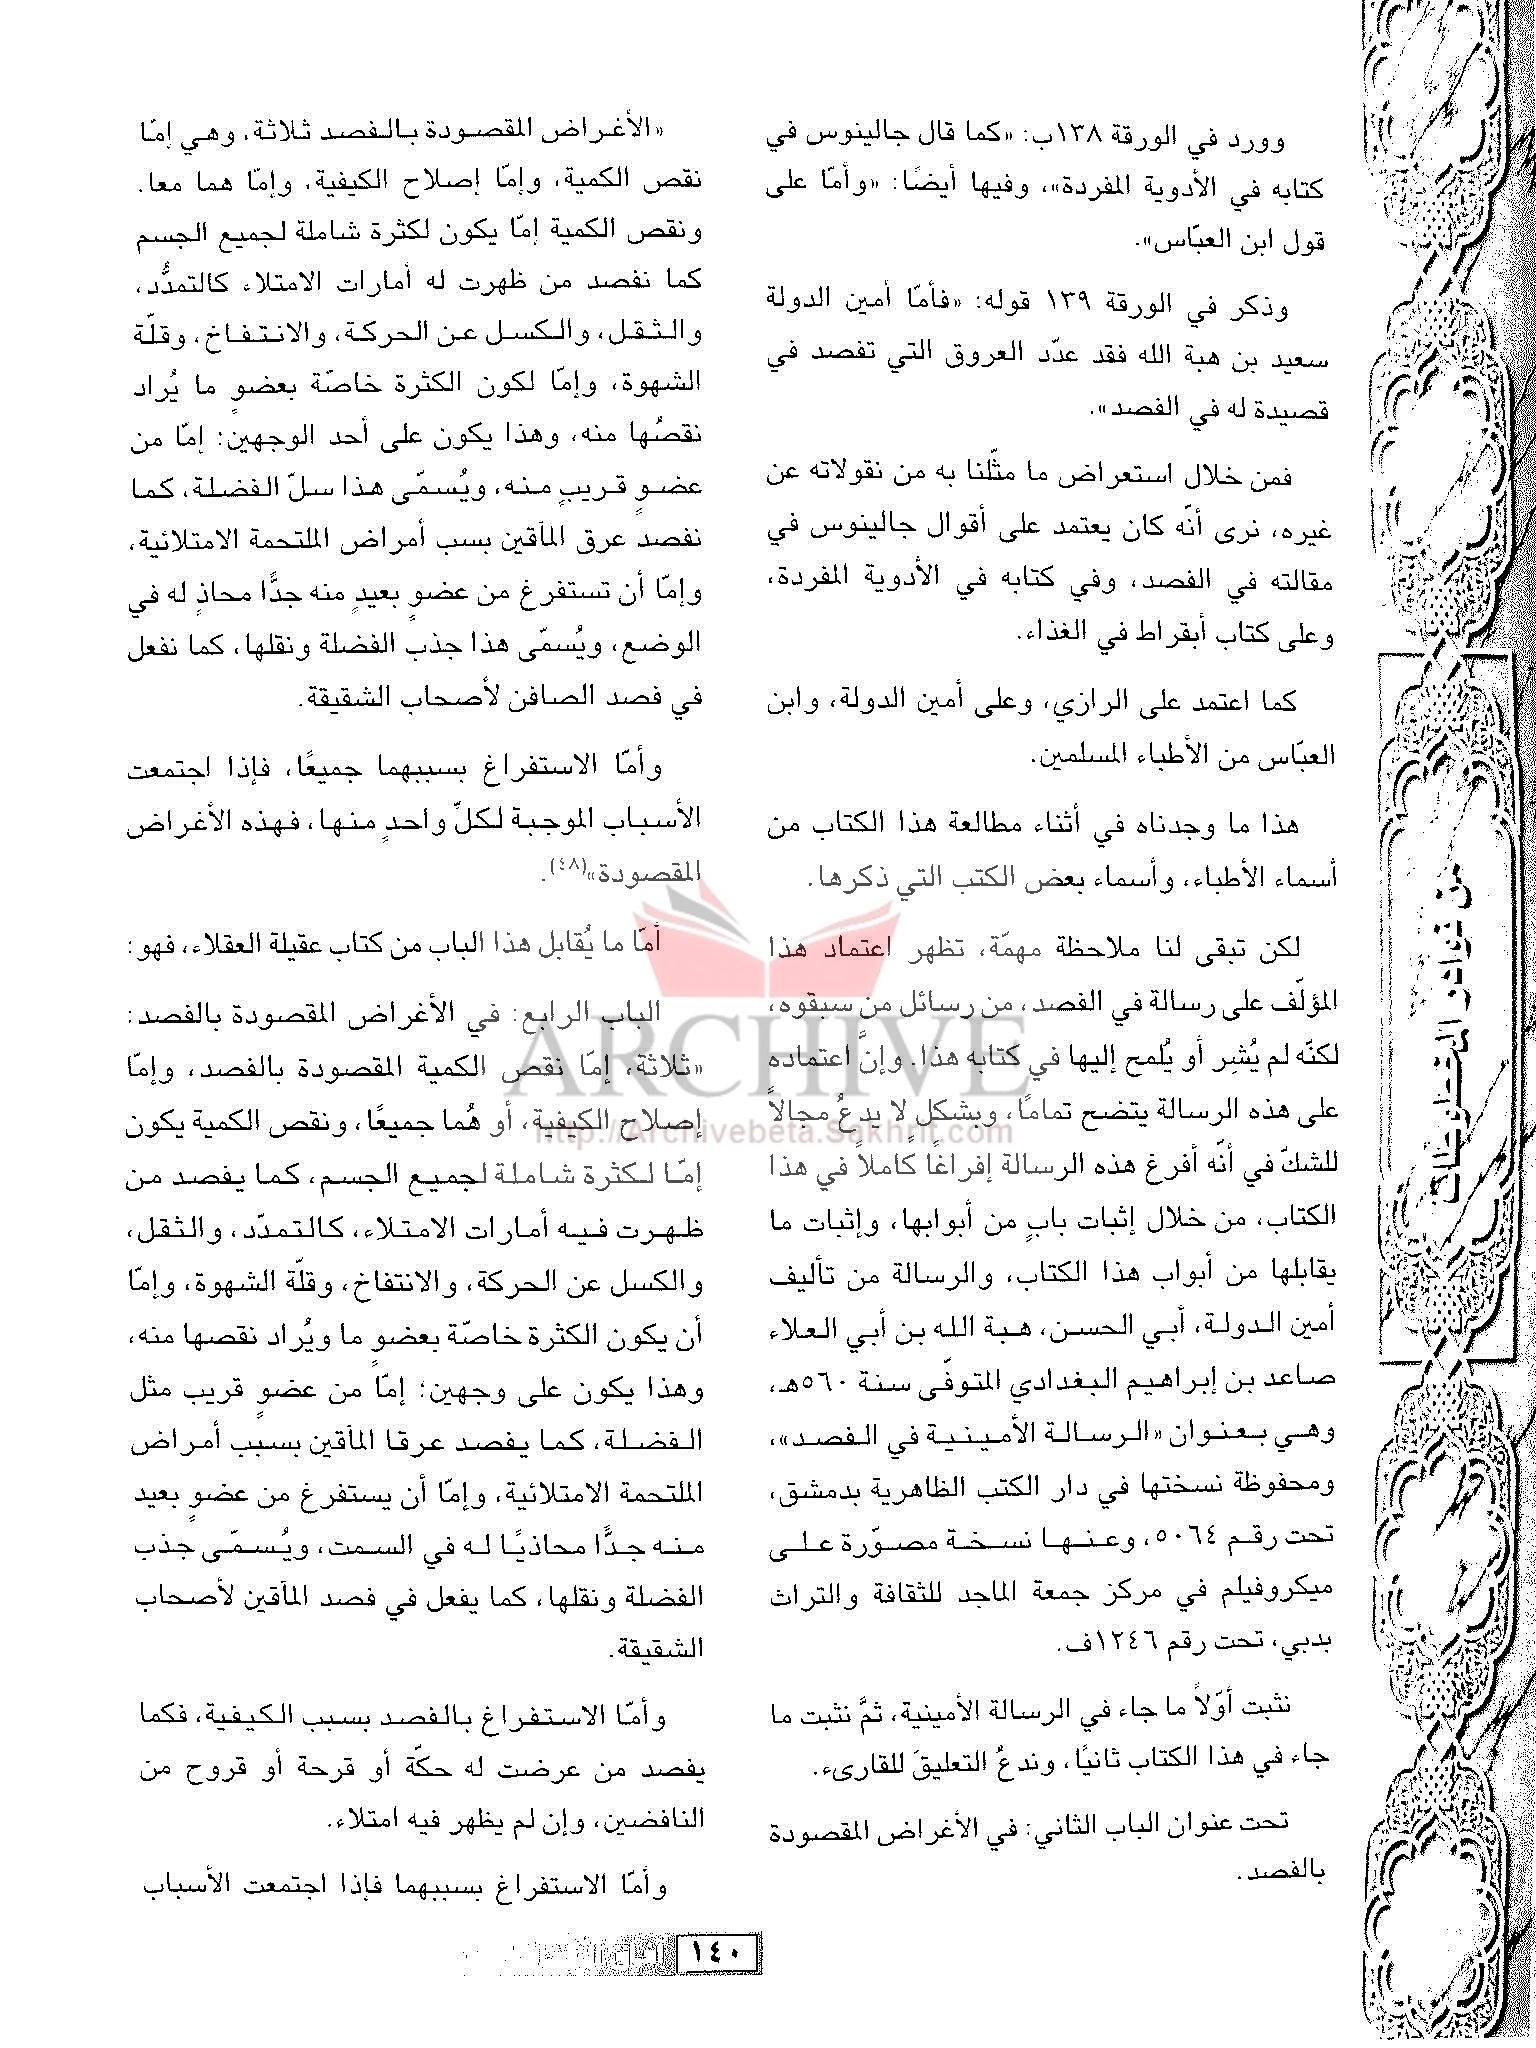 وورد في الورقة ١٣٨ب: «كما قال جالينوس في
كتابه في الأدوية المفردة»، وفيها أيضًا: «وأمّا على
قول ابن العبّاس».
وذكر في الورقة ١٣٩ قوله: «فأمّا أمين الدولة
سعيد بن هبة الله فقد عدّد العروق التي تفصد في
قصيدة له في الفصد».
فمن خلال استعراض ما مثّلنا به من نقولاته عن
غيره، نرى أنّه كان يعتمد على أقوال جالينوس في
مقالته في الفصد، وفي كتابه في الأدوية المفردة،
وعلى كتاب أبقراط في الغذاء.
كما اعتمد على الرازي، وعلى أمين الدولة، وابن
العبّاس من الأطباء المسلمين.
هذا ما وجدناه في أثناء مطالعة هذا الكتاب من
أسماء الأطباء، وأسماء بعض الكتب التي ذكرها.
لكن تبقى لنا ملاحظة مهمّة، تظهر اعتماد هذا
المؤلّف على رسالة في الفصد، من رسائل من سبقوه،
لكنّه لم يُشِر أو يُلمح إليها في كتابه هذا. وإنَّ اعتماده
على هذه الرسالة يتضح تمامًا، وبشكلٍ لا يدعُ مجالاً
للشكّ في أنّه أفرغ هذه الرسالة إفراغًا كاملاً في هذا
الكتاب، من خلال إثبات بابٍ من أبوابها، وإثبات ما
يقابلها من أبواب هذا الكتاب، والرسالة من تأليف
أمين الدولة، أبي الحسن، هبة الله بن أبي العلاء
صاعد بن إبراهيم البغدادي المتوفّى سنة ٥٦٠هـ،
وهي بعنوان «الرسالة الأمينية في الفصد»،
ومحفوظة نسختها في دار الكتب الظاهرية بدمشق،
تحت رقم ٥٠٦٤، وعنها نسخة مصوّرة على
ميكروفيلم في مركز جمعة الماجد للثقافة والتراث
بدبي، تحت رقم ١٢٤٦ف.
نثبت أوّلاً ما جاء في الرسالة الأمينية، ثمَّ نثبت ما
جاء في هذا الكتاب ثانيًا، وندعُ التعليقَ للقارىء.
تحت عنوان الباب الثاني: في الأغراض المقصودة
بالفصد.
«الأغراض المقصودة بالفصد ثلاثة، وهي إمّا
نقص الكمية، وإمّا إصلاح الكيفية، وإمّا هما معا.
ونقص الكمية إمّا يكون لكثرة شاملة لجميع الجسم
كما نفصد من ظهرت له أمارات الامتلاء كالتمدُّد،
والثقل، والكسل عن الحركة، والانتفاخ، وقلّة
الشهوة، وإمّا لكون الكثرة خاصّة بعضوٍ ما يُراد
نقصُها منه، وهذا يكون على أحد الوجهين: إمّا من
عضوٍ قريبٍ منه، ويُسمّى هذا سلّ الفضلة، كما
نفصد عرق المأقين بسب أمراض الملتحمة الامتلائية،
وإمّا أن تستفرغ من عضوٍ بعيدٍ منه جدًّا محاذٍ له في
الوضع، ويُسمّى هذا جذب الفضلة ونقلها، كما نفعل
في فصد الصافن لأصحاب الشقيقة.
وأمّا الاستفراغ بسببهما جميعًا، فإذا اجتمعت
الأسباب الموجبة لكلّ واحدٍ منها، فهذه الأغراض
المقصودة»(٤٨).
أمّا ما يُقابل هذا الباب من كتاب عقيلة العقلاء، فهو:
الباب الرابع: في الأغراض المقصودة بالفصد:
«ثلاثة، إمّا نقص الكمية المقصودة بالفصد، وإمّا
إصلاح الكيفية، أو هُما جميعًا، ونقص الكمية يكون
إمّا لكثرة شاملة لجميع الجسم، كما يفصد من
ظهرت فيه أمارات الامتلاء، كالتمدّد، والثقل،
والكسل عن الحركة، والانتفاخ، وقلّة الشهوة، وإمّا
أن يكون الكثرة خاصّة بعضوٍ ما ويُراد نقصها منه،
وهذا يكون على وجهين؛ إمّا من عضوٍ قريب مثل
الفضلة، كما يفصد عرقا المأقين بسبب أمراض
الملتحمة الامتلائية، وإمّا أن يستفرغ من عضوٍ بعيد
منه جدًّا محاذيًا له في السمت، ويُسمّى جذب
الفضلة ونقلها، كما يفعل في فصد المأقين لأصحاب
الشقيقة.
وأمّا الاستفراغ بالفصد بسبب الكيفية، فكما
يفصد من عرضت له حكّة أو قرحة أو قروح من
النافضين، وإن لم يظهر فيه امتلاء.
وأمّا الاستفراغ بسببهما فإذا اجتمعت الأسباب
من نوادر المخطوطات
ARCHIVE
http://Archivebeta.Sakhrit.com
١٤٠